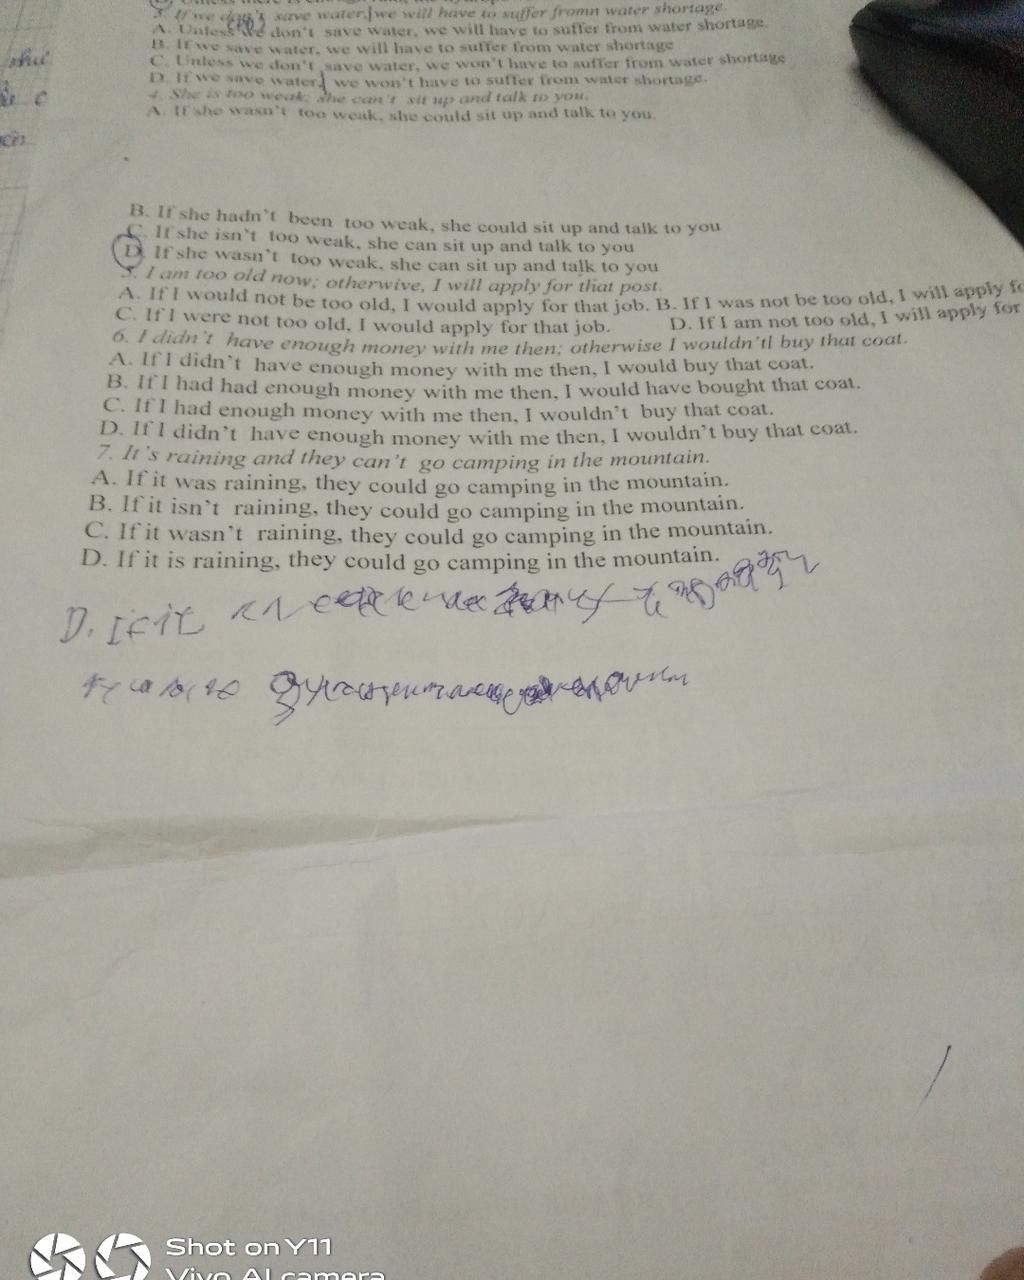 3. If we don't save water, we will have to suffer fromn water shortage.
A. Unless we don't save water, we will have to suffer from water shortage.
B. If we save water, we will have to suffer from water shortage
C. Unless we don't save water, we won't have to suffer from water shortage
D. If we save water, we won't have to suffer from water shortage.
4. She is too weak; she can't sit up and talk to you.
A. If she wasn't too weak, she could sit up and talk to you.
B. If she hadn't been too weak, she could sit up and talk to you
C. If she isn't too weak, she can sit up and talk to you
D. If she wasn't too weak, she can sit up and talk to you
5. I am too old now; otherwive, I will apply for that post.
A. If I would not be too old, I would apply for that job. B. If I was not be too old, I will apply fo
C. If I were not too old, I would apply for that job. D. If I am not too old, I will apply for
6. I didn't have enough money with me then; otherwise I wouldn'tl buy that coat.
A. If I didn't have enough money with me then, I would buy that coat.
B. If I had had enough money with me then, I would have bought that coat.
C. If I had enough money with me then, I wouldn't buy that coat.
D. If I didn't have enough money with me then, I wouldn't buy that coat.
7. It's raining and they can't go camping in the mountain.
A. If it was raining, they could go camping in the mountain.
B. If it isn't raining, they could go camping in the mountain.
C. If it wasn't raining, they could go camping in the mountain.
D. If it is raining, they could go camping in the mountain.
D. If it
Shot on Y11
Vivo AI camera